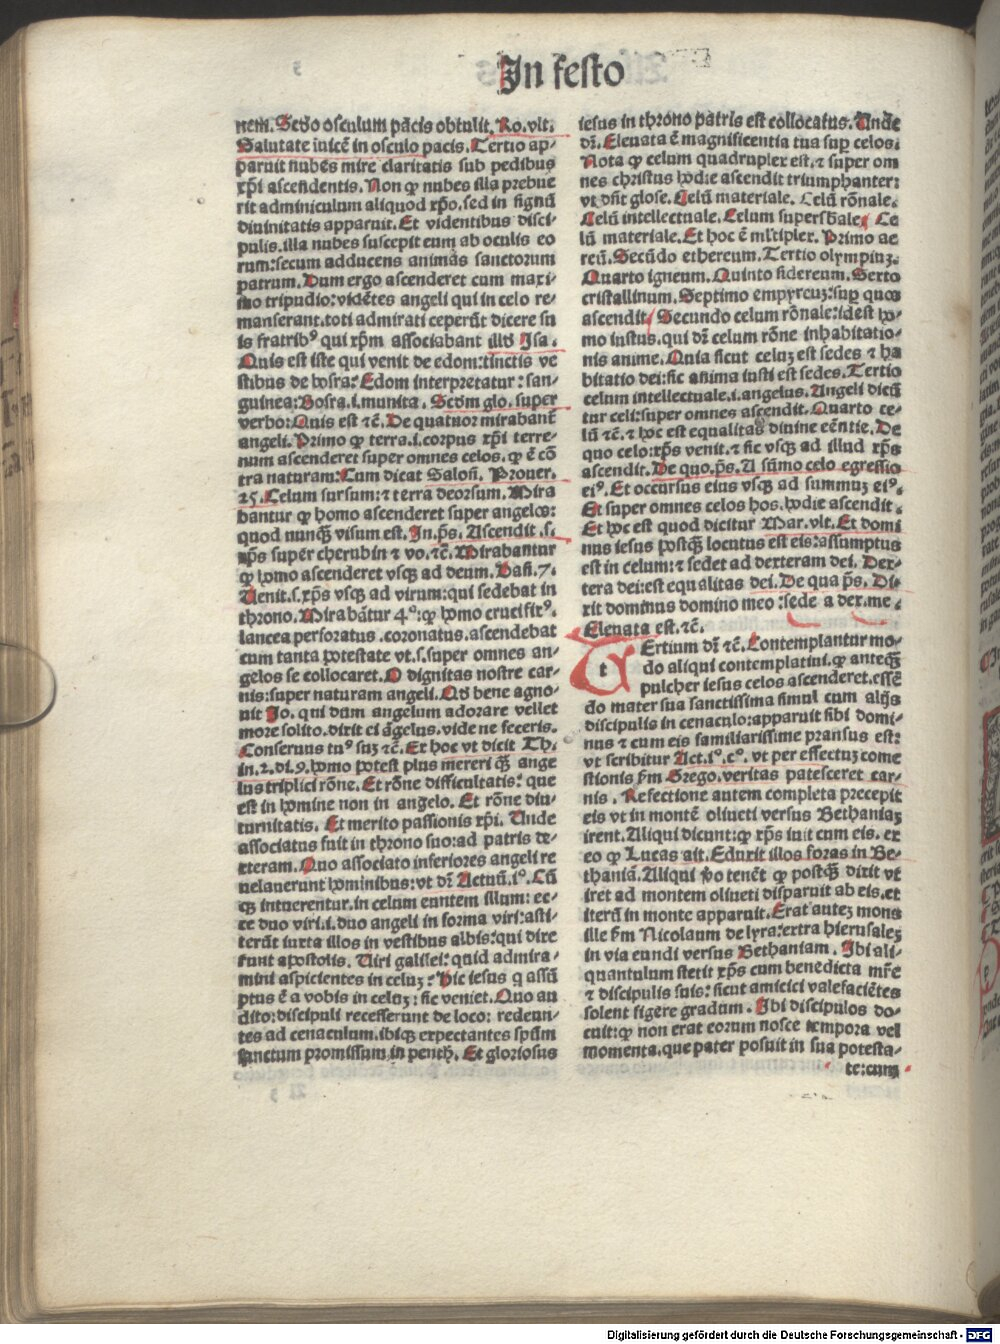 In festo
nem. Scd̄o osculum pācis obtulit. Ro. vlt.
Salutate īuicē in osculo pacis. Tertio ap-
paruit nubes mire claritatis sub pedibus
xp̄i ascendentis. Non ꝙ nubes illa prebue
rit adminiculum aliquod xp̄o. sed in signū
diuinitatis apparuit. Et videntibus disci-
pulis. illa nubes suscepit eum ab oculis eo
rum: secum adducens animas sanctorum
patrum. Dum ergo ascenderet cum maxi-
mo tripudio: vidētes angeli qui in celo re-
manserant. toti admirati ceperūt dicere su
is fratribꝰ qui xp̄m associabant illd̄ Isa.
Quis est iste qui venit de edom: tinctis ve
stibus de bosra: Edom interpretatur: san-
guinea: Bosra .i. munita. Scd̄m glo. super
verbo: Quis est ⁊c̄. De quatuor mirabant̄
angeli. Primo ꝙ terra .i. corpus xp̄i terre-
num ascenderet super omnes celos. ꝙ ē cō
tra naturam: Cum dicat Salon̄. Prouer.
25. Celum sursum: ⁊ terra deorsum. Mira
bantur ꝙ homo ascenderet super angelos:
quod nunꝙ̄ visum est. In. ps̄. Ascendit .s.
xp̄s super cherubin ⁊ vo. ⁊c̄. Mirabantur
ꝙ homo ascenderet vsqꝫ ad deum. Dan̄. 7.
Uenit .s. xp̄s vsqꝫ ad virum: qui sedebat in
throno. Mirabātur 4º: ꝙ homo crucifixꝰ.
lancea perforatus. coronatus. ascendebat
cum tanta potestate vt .s. super omnes an-
gelos se collocaret. O dignitas nostre car-
nis: super naturam angeli. Qd̄ bene agno-
uit Jo. qui dum angelum adorare vellet
more solito. dixit ei āgelus. vide ne feceris.
Conseruus tuꝰ suꝫ ⁊c̄. Ex hoc vt dicit Th.
in. 2. di. 9. homo potest plus mereri ꝙ̄ ange
lus triplici rōne. Et rōne difficultatis: que
est in homine non in angelo. Et rōne diu-
turnitatis. Et merito passionis xp̄i. Unde
associatus fuit in throno suo: ad patris de-
xteram. Quo associato inferiores angeli re
uelauerunt hominibus: vt dr̄ Actuū. iº. Cū
qꝫ intuerentur. in celum euntem illum: ec-
ce duo viri .i. duo angeli in forma viri: asti-
terūt iuxta illos in vestibus albis: qui dixe
runt apostolis. Uiri galilei: quid admira-
mini aspicientes in celuꝫ: Hic iesus q assū
ptus ē a vobis in celuꝫ: sic veniet. Quo au
dito: discipuli recesserunt de loco: redeun-
tes ad cenaculum. ibiqꝫ expectantes sp̄m
sanctum promissum in penth. Et gloriosus
iesus in throno patris est collocatus. Unde
dr̄. Eleuata ē magnificentia tua sup̄ celos.
Nota ꝙ celum quadruplex est. ⁊ super om
nes christus hodie ascendit triumphanter:
vt dn̄t glose. Celū materiale. Celū rōnale.
Celū intellectuale. Celum supersb̄ale. Ce
lū materiale. Et hoc ē mĺtiplex. Primo ae
reū. Secūdo ethereum. Tertio olympiuꝫ.
Quarto igneum. Quinto sidereum. Sexto
cristallinum. Septimo empyreuꝫ: sup̄ quos
ascendit. Secundo celum rōnale: idest ho-
mo iustus. qui dr̄ celum rōne inhabitatio-
nis anime. Quia sicut celuꝫ est sedes ⁊ ha
bitatio dei: sic anima iusti est sedes. Tertio
celum intellectuale .i. angelus. Angeli dicū
tur celi: super omnes ascendit. Quarto ce-
lū ⁊c̄. ⁊ hoc est equalitas diuine eēntie. De
quo celo: xp̄s venit. ⁊ sic vsqꝫ ad illud xp̄s
ascendit. De quo. ps̄. A sūmo celo egressio
eiꝰ. Et occursus eius vsqꝫ ad summuꝫ eiꝰ.
Et super omnes celos hos. hodie ascendit.
Et hoc est quod dicitur Mar. vlt. Et domi
nus iesus postꝙ̄ locutus est eis: assumptus
est in celum: ⁊ sedet ad dexteram dei. Dex-
tera dei: est equalitas dei. De qua ps̄. Di-
xit dominus domino meo: sede a dex. me.
Eleuata est. ⁊c̄.
tErtium dr̄ ⁊c̄. Contemplantur mo-
do aliqui contemplatiui. ꝙ anteꝙ̄
pulcher iesus celos ascenderet. essē
do mater sua sanctissima simul cum alijs
discipulis in cenaculo: apparuit sibi domi-
nus ⁊ cum eis familiarissime pransus est:
vt scribitur Act. iº. cº. vt per effectuꝫ come
stionis s̄m Grego. veritas patesceret car-
nis. Refectione autem completa precepit
eis vt in montē oliueti versus Bethaniaꝫ
irent. Aliqui dicunt: ꝙ xp̄s iuit cum eis. ex
eo ꝙ Lucas ait. Eduxit illos foras in Be-
thaniā. Aliqui v̄o tenēt ꝙ postꝙ̄ dixit vt
iret ad montem oliueti disparuit ab eis. et
iterū in monte apparuit. Erat auteꝫ mons
ille s̄m Nicolaum de lyra: extra hierusaleꝫ
in via eundi versus Bethaniam. Ibi ali-
quantulum stetit xp̄s cum benedicta mr̄e
⁊ discipulis suis: sicut amicici valefaciētes
solent figere gradum. Ibi discipulos do-
cuit: ꝙ non erat eorum nosce tempora vel
momenta. que pater posuit in sua potesta-
te: cum
Digitalisierung gefördert durch die Deutsche Forschungsgemeinschaft - DFG